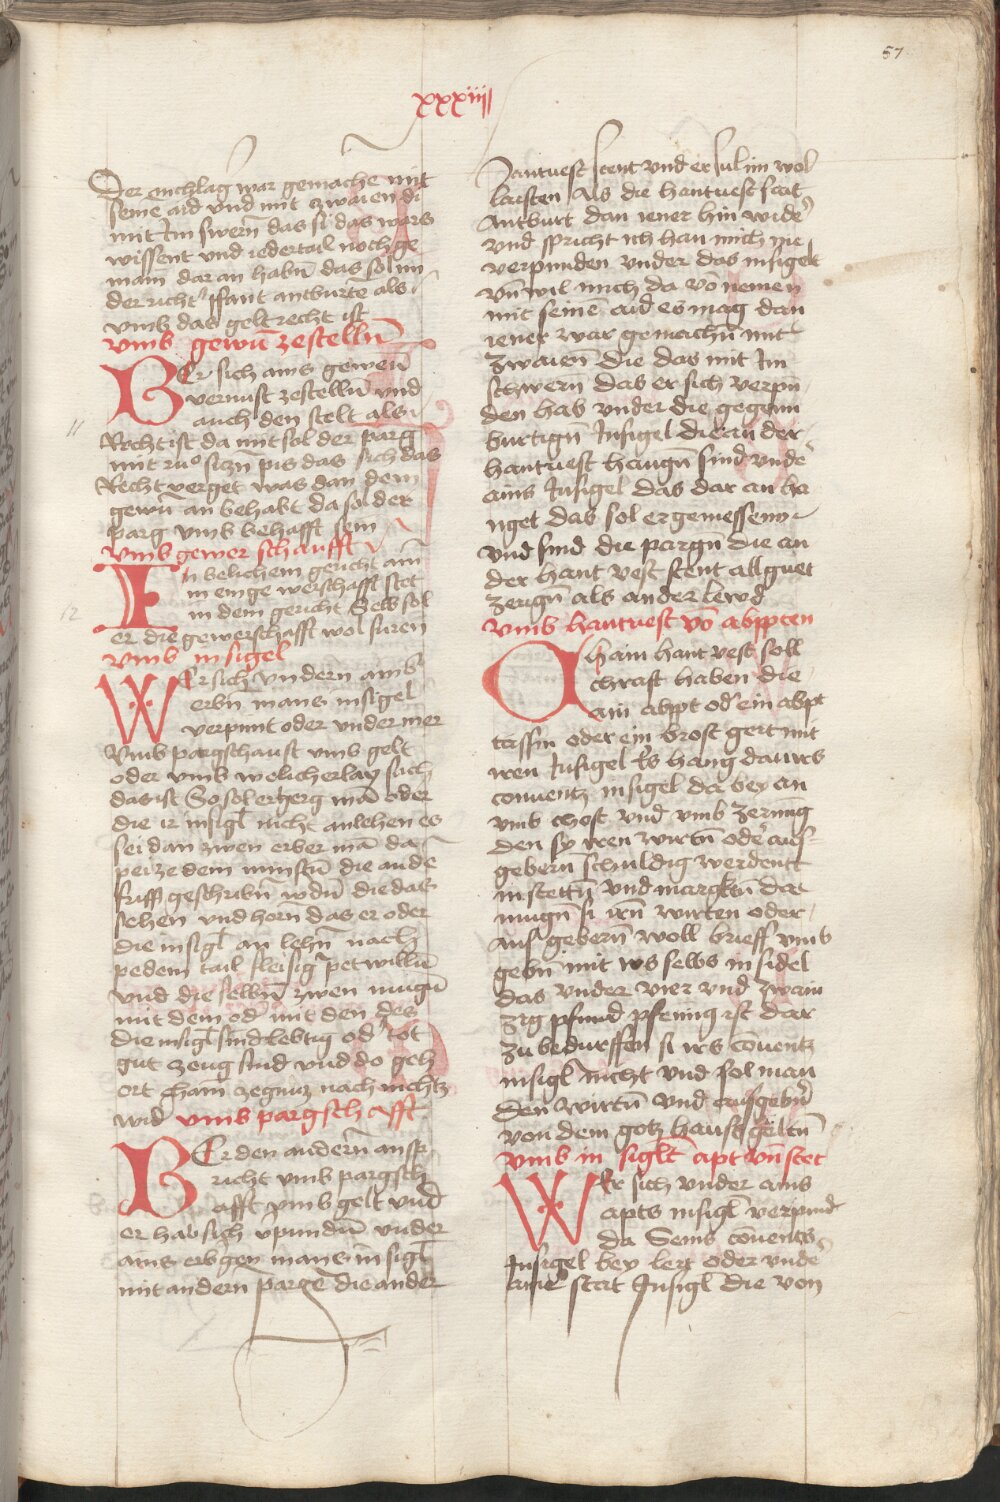 57
xxxiiij
Der onchlag war gemachen mit
seinē aid vnd mit zwaien di
mit Im swern das si das wars
wissent vnd iedertail noch ge
main dar an habn̄ das sol im
der richt͛ sant antburtē als
vmb das gelt recht ist
vmb gewn̄ zestelln̄
Er sich ains gewern̄
vernust zestelln̄ vnd
auch den stelt als
Recht ist da mit sol der parg
mit ruͦ siczn̄ pis das sich das
Recht verget was dan dem
gewn̄ an behabt da sol der
parg vmb behafft sein
vmb gewer schaufft
11
In belichem gericht ain̄
in einge werschafft stet
in dem gericht Selb sol
er die gewerschafft wol furen
12
vmb insigel
Wer sich vndern ainb
erbn̄ mans insigel
verpint oder vnder mer
Vmb pargschaust vmb gelt
oder vmb welicherlay sach
das ist So sol er herg mā oder
die ir insigl nicht anlehen es
sei dan zwen erber mā da
pei ze dem minstn̄ die an de
sriff geschribn̄ wdn̄ die das
sehen vnd horn das er oder
die insigl an lehn̄ nach
pedem tail fleisig͛ pet willn̄
vnd die selbn̄ zwen mugn̄
mit dem od͛ mit den des
die insigl sind lebtig od͛ tot
gut zeug sind vnd do geh
ort chain zegnuz nach nichtz
wid͛ vmb pargschafft
Er den andern̄ ansp
richt vmb pargsch
afft vmb gelt vnd
er hab sich v͛pundn̄ vnder
ains erbgen mans insigl
mit andern pargē die ander
Hantuest stent vnd er sul im wol
laisten Als die hantuest stat
Antburt dan iener hin wid͛
vnd spricht ich han mich nie
verpunden vnder das insigel
vn̄ wil mich da vō nemen
mit seinē aid es mag dan
iener war gemachn̄ mit
zwaien die das mit Im
schwern das er sich verpū
den hab vnder die gegem
burtign̄ Insigel die an der
hantuest hangn̄ sind vnde
ains Insigel das dar an ha
nget das sol er geniessen
vnd sind die pargn̄ die an
der hant vest stent all guet
zeugn̄ als ander lewd
vmb hantuest vō abppten
Chain hant vest soll
chraft haben die
ain abppt od͛ ein abpt
tissin oder ein brost geit mit
iren Insigel Es hang dan irs
conuentz insigel da bey an
vmb chost vnd vmb zerung
den sy iren wirtn̄ ode͛ aus
gebern schuldig werdent
in stettn̄ vnd margktn̄ das
mugn̄ si irn̄ wirten oder
aus gebern̄ woll brieff vmb
gebn̄ mit irs selbs in sidel
das vnder vier vnd zwain
zig pfund pfening ist dar
zu bedurffen si irs cōuentz
insigl nicht vnd sol man
den wirtn̄ vnd ausgebn̄
von dem gotzhaus geltn̄
vmb in siglt apt vn̄ stet
Wer sich vnder ains
apts insigl verpind
da Seins cōuents
Insigel bey leyt oder vnde
ainē stat Insigl die von